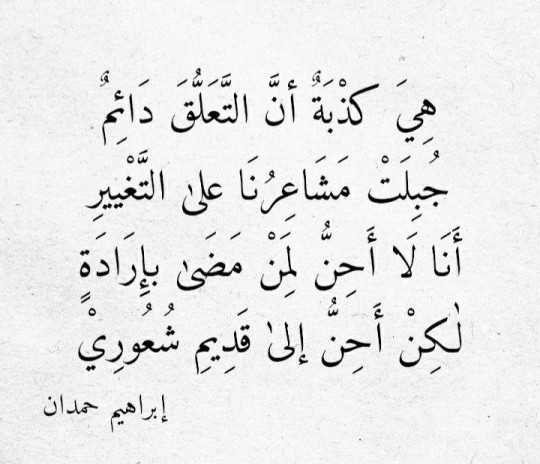 هِيَ كذْبَةٌ أنَّ التَّعَلُّقَ دَائِمٌ
جُبِلَتْ مَشَاعِرُنَا علىٰ التَّغْييرِ
أَنَا لَا أَحِنُّ لِمَنْ مَضَىٰ بإِرَادَةٍ
لٰكِنْ أَحِنُّ إلىٰ قَدِيمِ شُعُورِيْ
إبراهيم حمدان